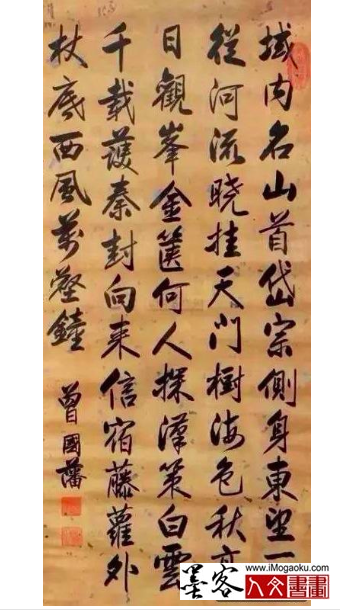 域内名山首岱宗側身東望一
從河流晓挂天門樹海色秋高
日觀峯金篋何人探漢策白雲
千載護秦封向来信宿藤蘿外
杖底西風萬壑鐘
曾國藩
www.iMogaoku.com
墨客
人文書畫